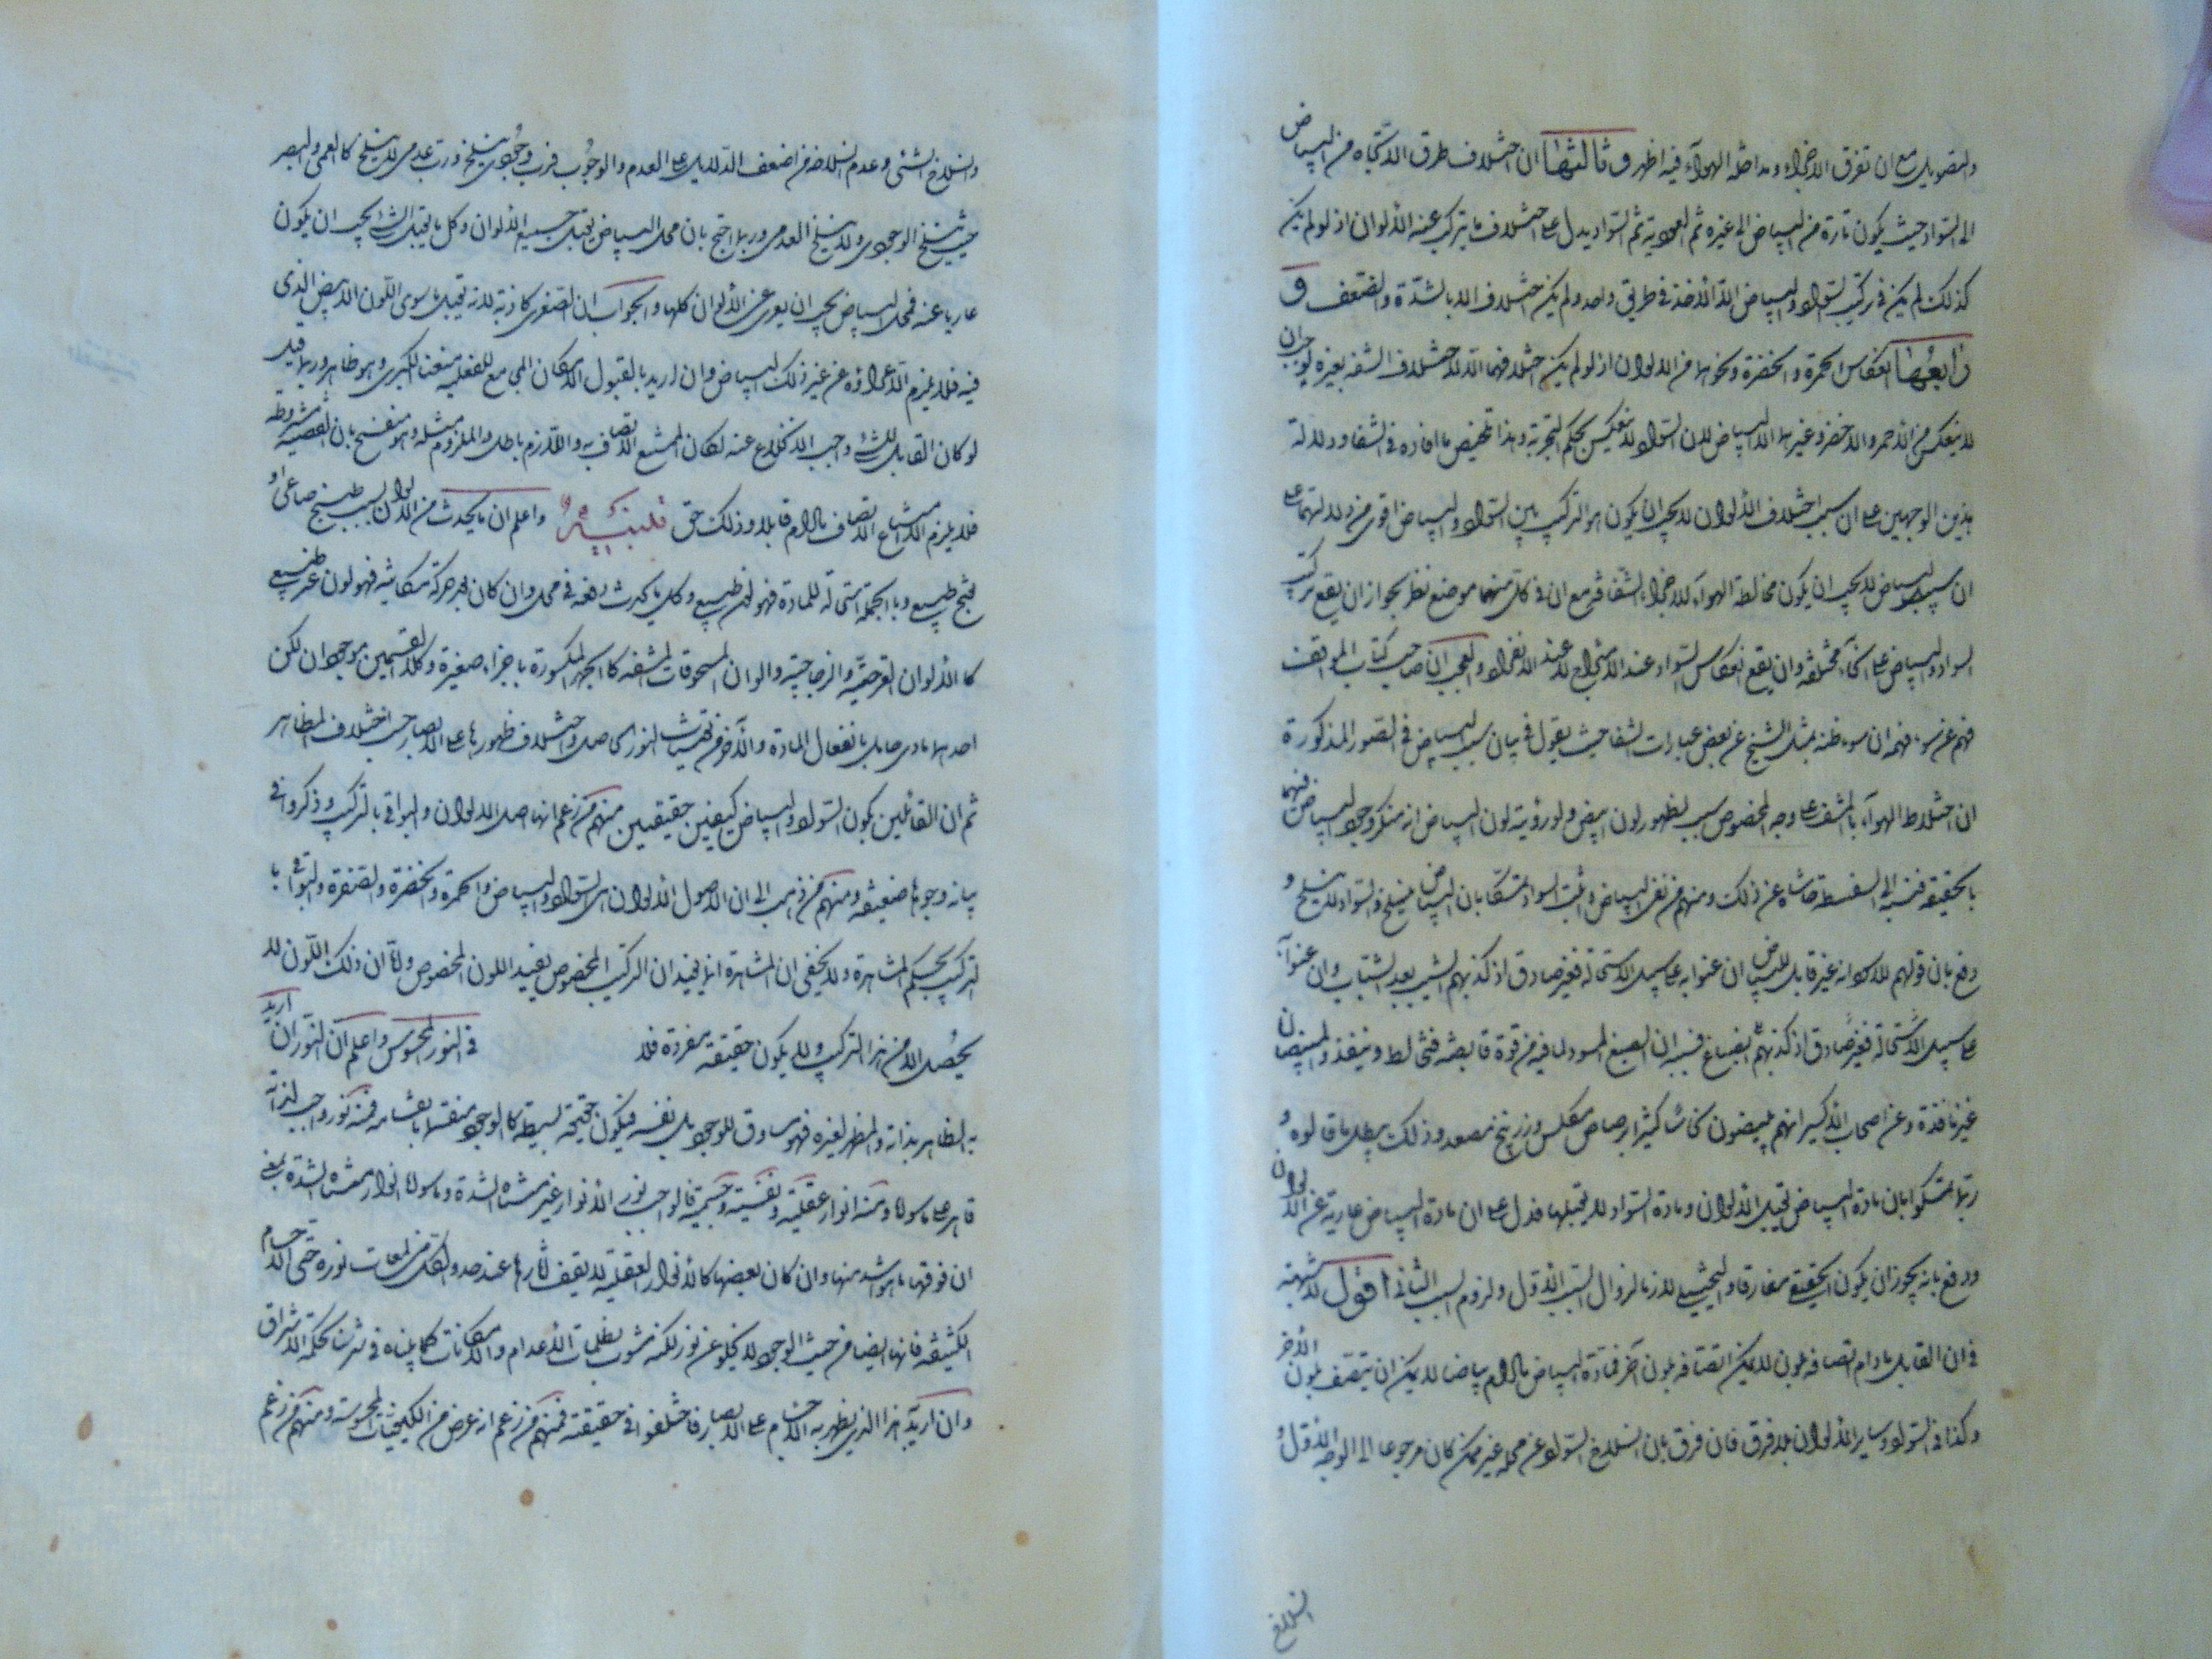 والتصويل مع ان تفرق الاجزاء ومداخلة الهواء فيه اظهر و ثالثها ان اختلاف طرق الاتجاه من البياض
الى السواد حيث يكون تارة من البياض الى غبرة ثم العودية ثم السواد يدل على اختلاف ما يتركب عنه الالوان اذ لو لم يكن
كذلك لم يكن في تركيب السواد والبياض الا الاخذ في طريق واحد ولم يكن اختلاف الا بالشدة والضعف و
رابعها انعكاس الحمرة والخضرة ونحوها من الالوان اذ لو لم يكن اختلافهما الا لاختلاف الشفه بغيره لوجب ان
لا ينعكس من الاحمر والاخضر وغيرها الا البياض لان السواد لا ينعكس بحكم التجربة وهذا تلخيص ما افاده في الشفا ودلالة
هذين الوجهين على ان سبب اختلاف الالوان لا يجب ان يكون هو التركيب بين السواد والبياض اقوى من دلالتهما على
ان سبب البياض لا يجب ان يكون مخالطة الهواء للاجزاء الشفافة مع ان في كل منهما موضع نظر لجواز ان يقع تركب
السواد والبياض على انحاء مختلفة وان يقع انعكاس السواد عند الامتزاج لا عند الانفراد والعجب ان صاحب كتاب المواقف
فهم عن سوء فهمه ان سوء ظنه بمثل الشيخ عن بعض عبارات الشفا حيث يقول في بيان سبب البياض في الصور المذكورة
ان اختلاط الهواء بالمشف على وجه المخصوص سبب لظهور لون ابيض ولرؤية لون البياض انه منكر وجود البياض فيها
بالحقيقة فنسبه الى السفسطة حاشاه عن ذلك ومنهم من نفى البياض واثبت السواد متمسكا بان البياض ينسلخ والسواد لا ينسلخ و
دفع بان قولهم للاسود انه غير قابل للبياض ان عنوا به على سبيل الاستحالة فغير صادق اذ كذبهم الشيب بعد الشباب وان عنوا به
على سبيل الاستحالة فغير صادق اذ كذبهم الصباغ فنسبه ان الصبغ المسود لما فيه من قوة قابضة فيخالط وينفذ والمبيضات
غير نافذة وعن اصحاب الاكسير انهم يبيضون نحاسا كثيرا برصاص مكلس وزرنيخ مصعد وذلك يبطل ما قالوه و
ربما تمسكوا بان مادة البياض تقبل الالوان ومادة السواد لا يقبلها فدل على ان مادة البياض عارية عن الالوان
ودفع بانه يجوز ان يكون الحقيقي مفارقا والتخييلي لازما لزوال السبب الاول ولزوم السبب الثاني اقول لا شبهة
في ان القابل مادام اتصافه بلون لا يمكن اتصافه بلون آخر فمادة البياض مادام بياضا لا يمكن ان يتصف بلون الآخر
وكذا في السواد وساير الالوان بلا فرق فان فرق بان انسلاخ السواد عن محله غير ممكن كان مرجوعا الى الوجه الاول و
انسلاخ
وانسلاخ الشئ وعدم انسلاخه من اضعف الدلايل على العدم والوجوب فرب وجودي ينسلخ ورب عدمي لا ينسلخ كالعمى والبصر
حيث ينسلخ الوجودي ولا ينسلخ العدمي وربما احتج بان محل البياض يقبل جميع الالوان وكل ما يقبل الشئ يجب ان يكون
عاريا عنه فمحل البياض يجب ان يعرى عن الالوان كلها والجواب ان الصغرى كاذبة لانه يقبل ما سوى اللون الابيض الذي
فيه فلا يلزم الا عراؤه عن غير ذلك البياض وان اريد بالقبول الامكان المجامع للفعلية منعنا الكبرى وهو ظاهر وربما قيل
لو كان القابل للشئ واجب الانخلاع عنه لكان ممتنع الاتصاف به واللازم باطل والملزوم مثله وهو منفسخ بان القضية مشروطة
فلا يلزم الا امتناع الاتصاف مادام قابلا وذلك حق تنبيه واعلم ان ما يحدث من الالوان بسبب طبخ صناعي او
نضج طبيعي وبالجملة استحالة للمادة فهو لون طبيعي وكل ما يحدث دفعة في محل وان كان بعد حركة مكانية فهو لون غير طبيعي
كالالوان القزحية والزجاجية والوان المسحوقات المشفه كالجمد المكسورة باجزاء صغيرة وكلا القسمين موجودان لكن
احدهما مادي حاصل بانفعال المادة والآخر من تحيثات النور حاصل واختلاف ظهورها على الابصار حسب اختلاف المظاهر
ثم ان القائلين بكون السواد والبياض كيفيتين حقيقيتين منهم من زعم انهما اصل الالوان والبواقي بالتركيب وذكروا في
بيانه وجوها ضعيفة ومنهم من ذهب الى ان الاصول الالوان هي السواد والبياض والحمرة والخضرة والصفرة والبواقي با
لتركيب بحكم المشاهدة ولا يخفى ان المشاهدة انما يفيد ان التركيب المخصوص يفيد اللون المخصوص واما ان ذلك اللون لا
يحصل الا من هذا التركيب ولا يكون حقيقة مفردة فلا في النور المحسوس واعلم ان النور ان اريد
به الظاهر بذاته والمظهر لغيره فهو مساوق للوجود بل نفسه فيكون حقيقة بسيطة كالوجود منقسما بانقسامه فمنه نور واجب لذاته
قاهر على ما سواه ومنه انوار عقلية ونفسية وجسمية فالواجب نور الانوار غير متناه الشدة وما سواه انوار متناه الشدة بمعنى
ان فوقها ما هو اشد منها وان كان بعضها كالانوار العقلية لا يقف آثارها عند حد والكل من لمعات نوره حتى الاجسام
الكثيفة فانها ايضا من حيث الوجود لا يخلو عن نور لكنه مشوب بظلمات الاعدام والامكانات كما بيناه في شرح حكمة الاشراق
وان اريد به هذا الذي يظهر به الاجسام على الابصار فاختلفوا في حقيقته فمنهم من زعم انه عرض من الكيفيات المحسوسة ومنهم من زعم